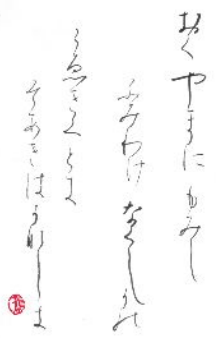 おくやまに もみし
ふみわけ なくしかの
こゑきくとき
そあきはかなしき